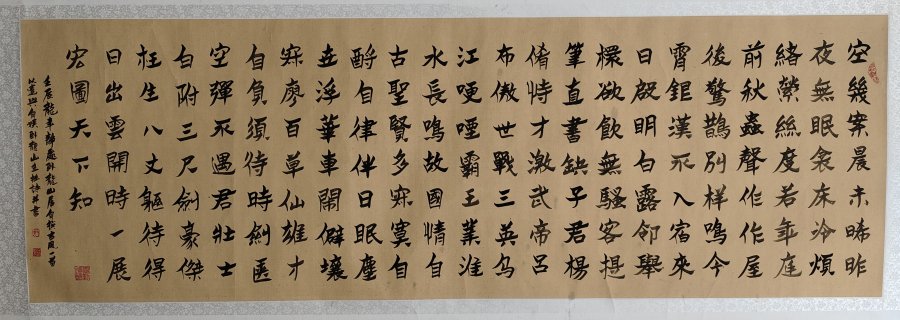 空幾案晨未晞昨
夜無眠衾床冷煩
絡縈絲度若年庭
前秋蟲聲作作屋
後驚鵲別樣鳴今
霄銀漢不入宿來
日啟明白露邻舉
欲飲無騷客提
筆直書缺子君楊
脩恃才激武帝呂
布傲世戰三英烏
江哽咽霸王業淮
水長鳴故國情自
古聖賢多寂寞自
酹自律伴日眠塵
世浮華車閙僻壤
寂廖百草仙雄才
自負須待時劍匧
空彈不遇君壯士
白附三尺劍豪傑
枉生八丈軀待得
日出雲開時一展
宏圖天下知
壬辰龍年